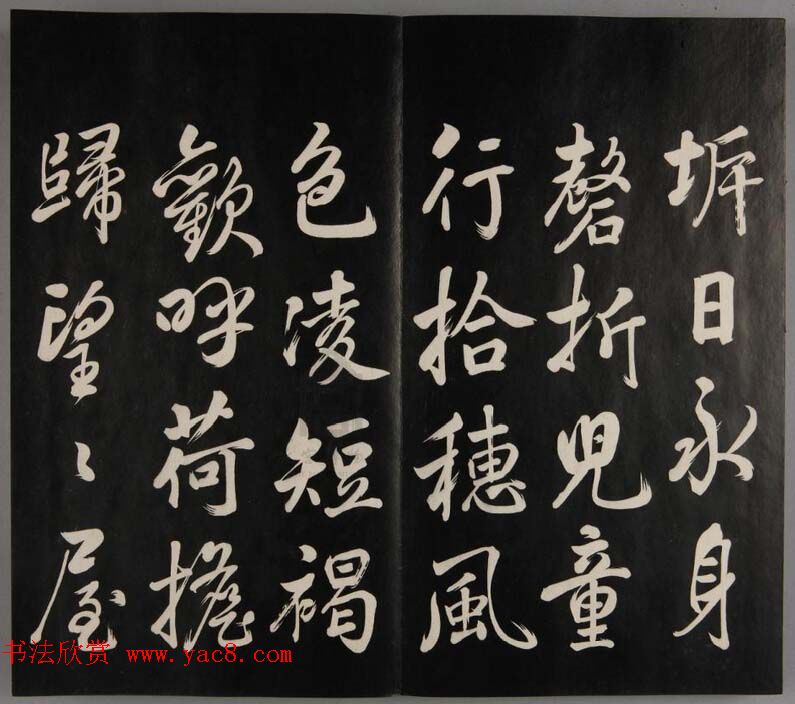 坼日永身
磬折兒童
行拾穗風
色凌短褐
歡呼荷擔
歸望々屋
书法欣赏 www.yac8.com